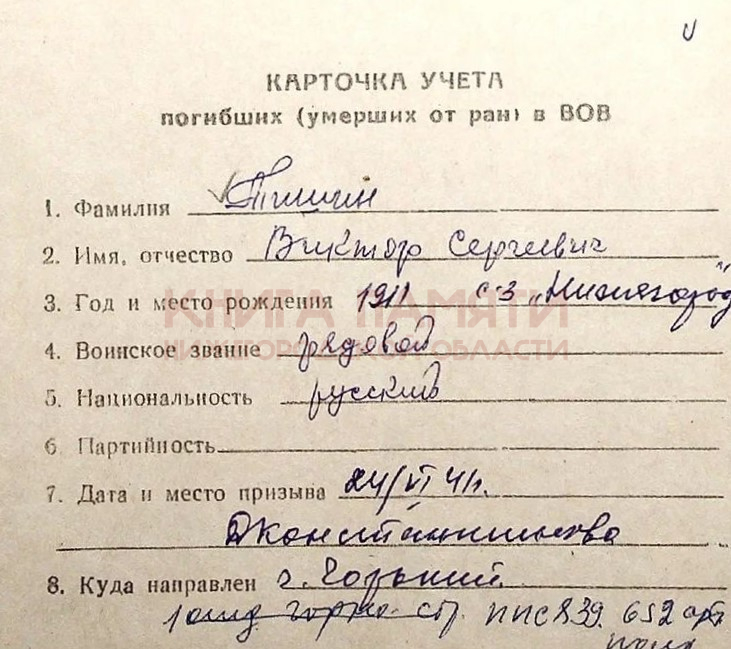 КАРТОЧКА УЧЕТА
погибших (умерших от ран) в ВОВ
1. Фамилия Тишин
2. Имя, отчество Виктор Сергеевич
3. Год и место рождения 1911 с-з „Нижегород"
КНИГА ПАМЯТИ
НИЖЕГОРОДСКОЙ ОБЛАСТИ
4. Воинское звание рядовой
5. Национальность русский
6 Партийность
7. Дата и место призыва 24/VI 41г.
Дконстантиново
8. Куда направлен г. Горький
стр. ппс 839. 652 арт